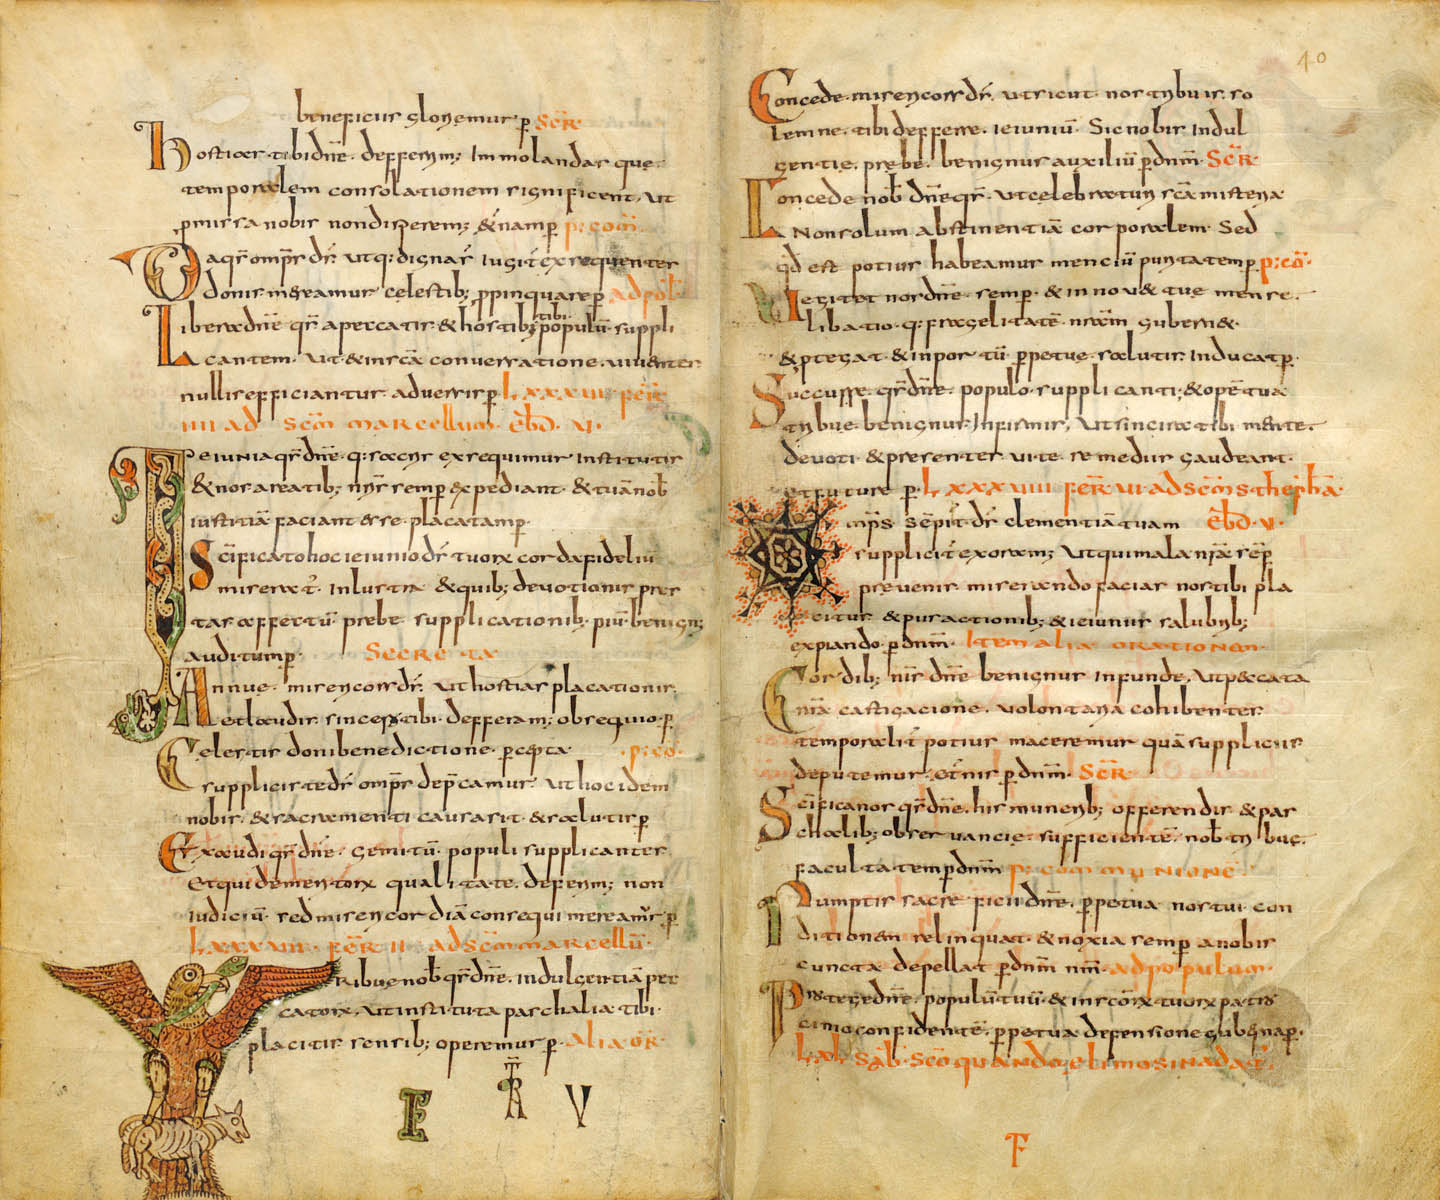 beneficiis gloriemur p̄ Sc̄R
hostias tibi dn̄e defferim; Immolandas que
temporalem consolationem significent, ut
p̄missa nobis non disperem; & n̄am p̄ p; com̄
Da qs̄ omp̄s d̄s ut q; dignas̄ iugit̄ exsequentes
donis mereamur celestib; p̄pinquare p̄ ad pop̄l
Libera dn̄e qs̄ a peccatis & hostib; tibi populū suppli
cantem. ut & in sc̄a conversatione viventes
nullis efficiantur adversis p̄ Lxxxvii fer̄
iiii ad sc̄m marcellum. eb̄d. v.
Ieiunia qs̄ dn̄e q; sacris exsequimur institutis
& nos a reatib; nr̄is semp̄ expediant & tuā nob̄
iustitiā faciant esse placatam p̄.
Sc̄ificato hoc ieiunio d̄s tuorx corda fideliū
miserat̄ inlustra & quib; devotionis pres
tas affectū prebe supplicationib; piū benign;
auditum p̄ Secreta
Annue misericors d̄s ut hostias placationis
et laudis sincera tibi defferam; obsequio p̄
Celestis doni benedictione p̄cepta p; co
supplicis te d̄s omp̄s dep̄camur ut hoc idem
nobis & sacramenti causa sit & salutis p̄
Exaudi qs̄ dn̄e gemitū populi supplicantes
et qui de meritorx qualitate deferim; non
iudiciū sed misericordiā consequi mereamur p̄
Lxxxviii fer̄ ii ad sc̄m marcellū.
Tribue nob̄ qs̄ dn̄e indulgentiā pec
catorx, ut instituta paschalia tibi
placitis sensib; operemur p̄ Alia oR̄
E R V
40
Concede misericors d̄s ut sicut nos tribuis so
lemne tibi defferre ieiuniū Sic nobis indul
gentie prebe benignus auxiliū p̄ dn̄m Sc̄R
Concede nob̄ dn̄e qs̄ ut celebraturi sc̄a misteria
Non solum abstinentiā corporalem Sed
qd̄ est potius habeamus menciū puritatem p̄ p; cō
Vegitet nos dn̄e semp̄ & innov& tue mense
libatio q; fragelitatē nr̄am gubern&
& p̄tegat & in portū p̄petue salutis inducat p̄
Succurre qs̄ dn̄e populo supplicanti; & opē tuā
tribue benignus infirmis, ut sincera tibi mente
devoti & presentes vite remediis gaudeant
et future p̄ Lxxxviiii fer̄ vi ad sc̄m stephā
Omp̄s semp̄it̄ d̄s clementiā tuam eb̄d. v.
supplicit̄ exoram; ut qui mala nr̄a semp̄
prevenis miserando facias nos tibi pla
citus & puractionib; & ieiuniis salubrib;
expiando p̄ dn̄m Item alia orationem
Cordib; nr̄is dn̄e benignus infunde, ut peccata
nr̄a castigacione volontaria cohibentes
temporalit̄ potius maceremur quā suppliciis
deputemur et̄nis p̄ dn̄m Sc̄R
Sc̄ifica nos qs̄ dn̄e his munerib; offerendis & pas
chalib; observancie sufficientē nob̄ tribue
facultatem p̄ dn̄m p; communionē
Sumptis sacrificii dn̄e p̄petua nos tui con
ditionem relinquat & noxia semp̄ a nobis
cuncta depellat p̄ dn̄m nm̄ ad populum.
Protege dn̄e populū tuū & in scōrx tuorx patro
cinio confidentē p̄petua defensione guberna p̄
Lxl. Sab̄. Sc̄o quando elimosina dat̄
F